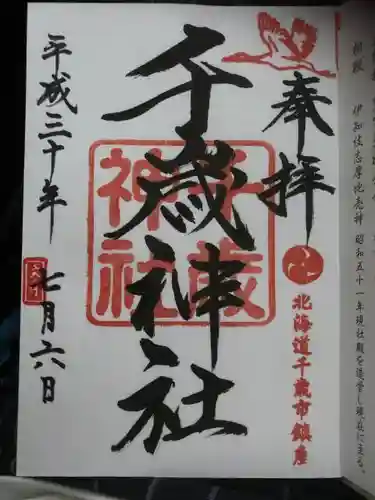 奉拝
北海道千歳市鎮座
千歳神社
千歳神社
平成三十年
七月六日
昭和五十一年現社殿を造営し現在に至る。